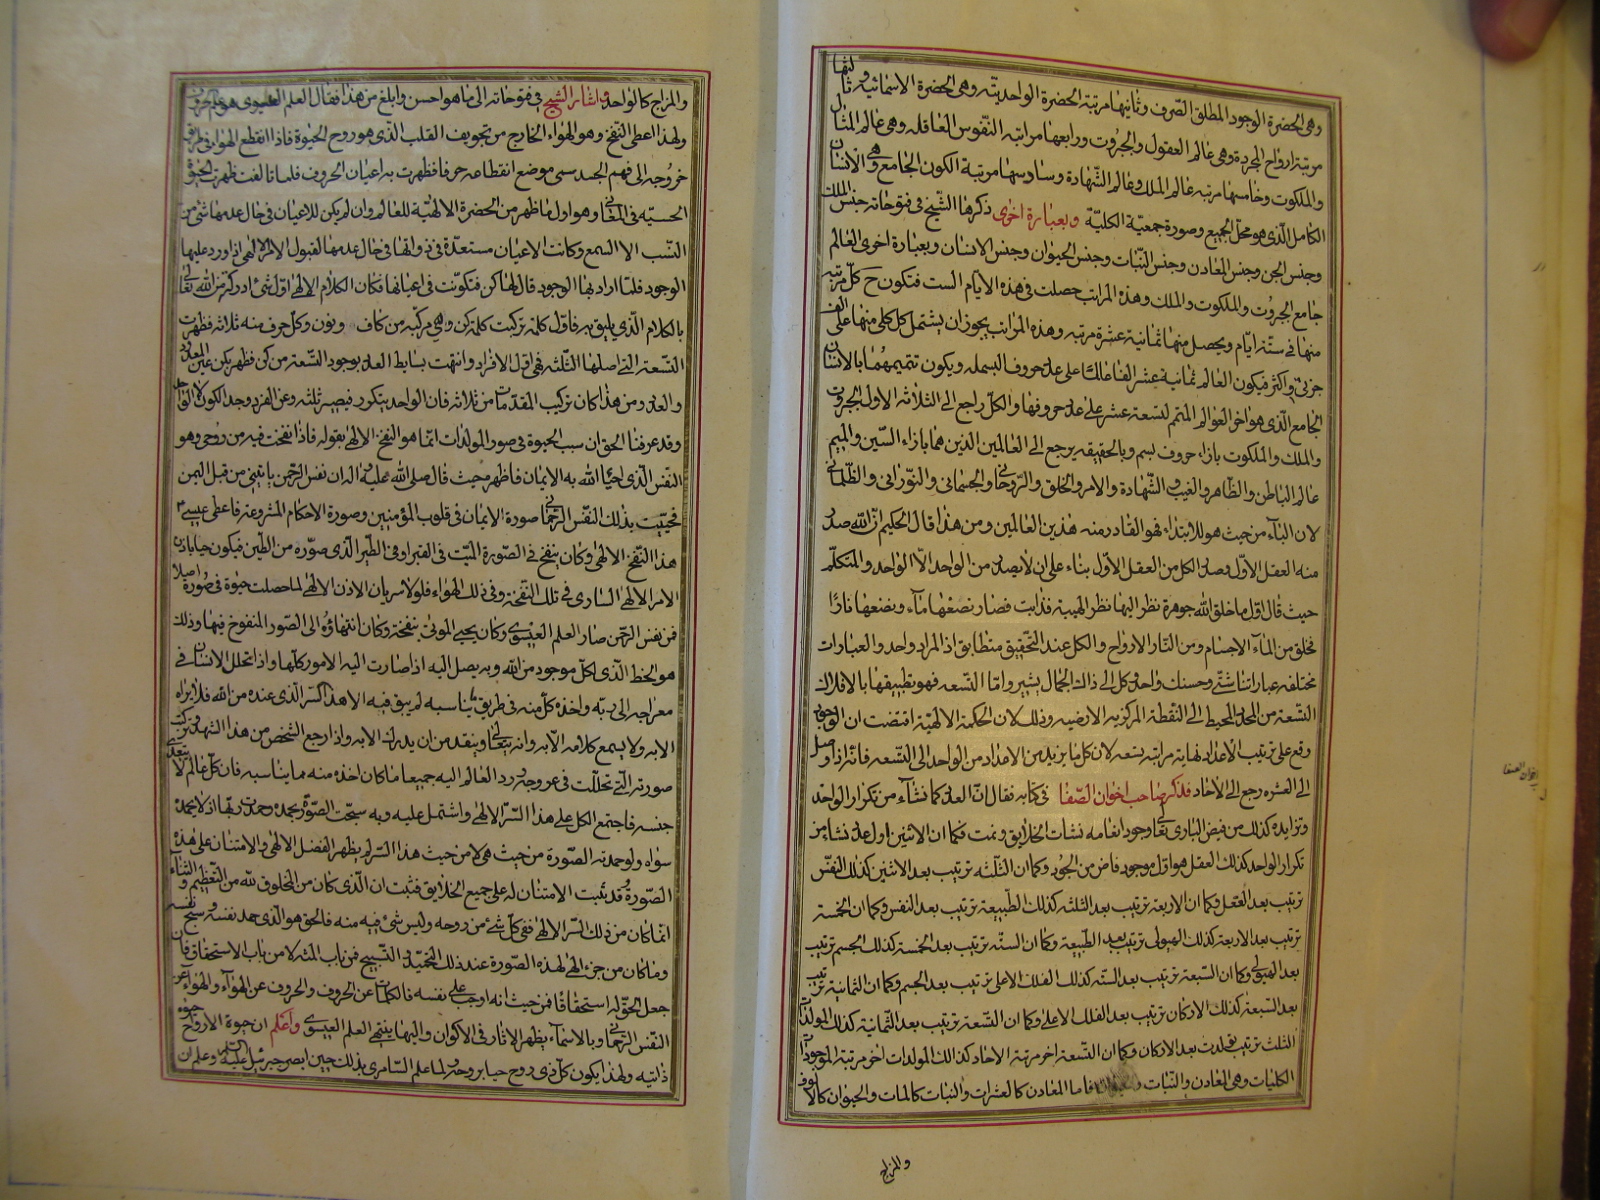 وهى الحضرة الوجود المطلق الصرف وثانيها مرتبة الحضرة الواحدية وهى الحضرة الاسمائية وثالثها
مرتبة ارواح المجردة وهى عالم العقول والجبروت ورابعها مرتبه النفوس العاقله وهى عالم المثال
والملكوت وخامسها مرتبه عالم الملك وعالم الشهادة وسادسها مرتبة الكون الجامع وهى الانسان
الكامل الذى هو محل الجميع وصورة جمعية الكلية وبعبارة اخرى ذكرها الشيخ فى فتوحاته جنس الملك
وجنس الجن وجنس المعادن وجنس النبات وجنس الحيوان وجنس الانسان وبعبارة اخرى العالم
جامع الجبروت والملكوت والملك وهذه المراتب حصلت فى هذه الايام الست فتكون ح كل مرتبه
منها فى ستة ايام ويحصل منها ثمانية عشرة مرتبه وهذه المراتب يجوز ان يشتمل كل كلى منها على الف
جزئى واكثر فيكون العالم ثمانية عشر الف عالما على عدد حروف البسمله ويكون تتميمهما بالانسان
الجامع الذى هو اخر العوالم المتمم لتسعة عشر على عدد حروفها والكل راجع الى الثلاثه الاول الجبروت
والملك والملكوت بازاء حروف بسم وبالحقيقه يرجع الى العالمين الذين هما بازاء السين والميم
عالم الباطن والظاهر والغيب والشهادة والامر والخلق والروحانى والجسمانى والنورانى والظلمانى
لان الباء من حيث هو للابتداء فهو القادر منه هذين العالمين ومن هذا قال الحكيم ان الله صدر
منه العقل الاول وصدر الكل من العقل الاول بناء على ان لا يصدر من الواحد الا الواحد والمتكلم
حيث قال اول ما خلق الله جوهرة نظر اليها نظر الهيبة فذابت فصار نصفها ماء ونصفها نارا
فخلق من الماء الاجسام ومن النار الارواح والكل عند التحقيق متطابق اذ المراد واحد والعبارات
مختلفه عباراتنا شتى وحسنك واحد وكل الى ذاك الجمال يشير واما التسعه فهو تطبيقها بالافلاك
التسعة من المحدد المحيط الى النقطة المركزيه الارضيه وذلك لان الحكمة الالهية اقتضت ان الوجود
وقع على ترتيب الاعداد نهاية مراتبه تسعه لان كل ما يزيد من الاعداد من الواحد الى التسعه فانه اذا وصل
الى العشره رجع الى الآحاد فذكر صاحب اخوان الصفا فى كتابه فقال ان العدد كما نشأ من تكرار الواحد
وتزايده كذلك من فيض البارى تعالى وجود انعامه نشات الخلايق ونمت فكما ان الاثنين اول عدد نشاء من
تكرار الواحد كذلك العقل هو اول موجود فاض من الجود وكما ان الثلثه ترتيب بعد الاثنين كذلك النفس
ترتيب بعد العقل وكما ان الاربعة ترتيب بعد الثلثه كذلك الطبيعة ترتيب بعد النفس وكما ان الخمسة
ترتيب بعد الاربعة كذلك الهيولى ترتيب بعد الطبيعة وكما ان الستة ترتيب بعد الخمسة كذلك الجسم ترتيب
بعد الهيولى وكما ان السبعة ترتيب بعد الستة كذلك الفلك الاعلى ترتيب بعد الجسم وكما ان الثمانية ترتيب
بعد السبعة كذلك الاركان ترتيب بعد الفلك الاعلى وكما ان التسعة ترتيب بعد الثمانية كذلك المولدات
الثلث ترتيب فولدت بعد الاركان وكما ان التسعة اخر مرتبة الاحاد كذلك المولدات اخر مرتبة الموجودات
الكليات وهى المعادن والنبات فاما المعادن كالعشرات والنبات كالمات والحيوان كالالوف
والمزاج
اخوان الصفا
والمزاج كالواحد واشار الشيخ فى فتوحاته الى ما هو احسن وابلغ من هذا فقال العلم العيسوى هو علم الحروف
ولهذا اعطى النفخ وهو الهواء الخارج من تجويف القلب الذى هو روح الحيوة فاذا انقطع الهواء فى طريق
خروجه الى فم الجسد سمى موضع انقطاعه حرفا فظهرت به اعيان الحروف فلما تالفت ظهرت الحيوة
الحسيه فى المعانى وهو اول ما ظهر من الحضرة الالهية للعالم وان لم يكن للاعيان فى حال عدمها شئ من
النسب الا السمع وكانت الاعيان مستعدة فى ذواتها فى حال عدمها لقبول الامر الالهى اذا ورد عليها
الوجود فلما اراد بها الوجود قال لها كن فتكونت فى اعيانها فكان الكلام الالهى اول شئ ادركته من الله تعالى
بالكلام الذى يليق به فاول كلمة تركبت كلمة كن وهى مركبه من كاف وواو ونون وكل حرف منه ثلاثه فظهرت
التسعة التى اصلها الثلثه فهى اول الافراد وانتهت بسايط العدد بوجود التسعة من كن فظهر بكن عين المعدود
والعدد ومن هذا كان تركيب المقدمات من ثلاثه فان الواحد يتكرر فيصير ثلثه وعن الفرد وجد الكون لا عن الواحد
وقد عرفنا الحق ان سبب الحيوة فى صور المولدات انما هو النفخ الالهى بقوله فاذا نفخت فيه من روحى وهو
النفس الذى احيا الله به الايمان فاظهره حيث قال صلى الله عليه وآله ان نفس الرحمن ياتينى من قبل اليمن
فحييت بذلك النفس الرحمانى صورة الايمان فى قلوب المؤمنين وصورة الاحكام المشروعة فاعطى عيسى
هذا النفخ الالهى وكان ينفخ فى الصورة الميت فى القبر او فى الطير الذى صوره من الطين فيكون حيا باذن
الامر الالهى السارى فى تلك النفخة وفى ذلك الهواء فلولا سريان الاذن الالهى لما حصلت حيوة فى صورة اصلا
فمن نفس الرحمن صار العلم العيسوى وكان يحيى الموتى بنفخته وكان انتهاؤه الى الصور المنفوخ فيها وذلك
هو الحظ الذى لكل موجود من الله وبه يصل اليه اذا صارت اليه الامور كلها واذا تحلل الانسان فى
معراجه الى ربه واخذه كل منه فى طريقه ما يناسبه لم يبق فيه الا هذا السر الذى عنده من الله فلا يراه
الا به ولا يسمع كلامه الا به وانه يتعالى ويتقدس من ان يدرك الا به واذا رجع الشخص من هذا الشهد وتركبت
صورته التى تحللت فى عروجه ورد العالم اليه جميعا ما كان اخذه منه مما يناسبه فان كل عالم لا يتعدى
جنسه فاجتمع الكل على هذا السر الالهى واشتمل عليه وبه سبحت الصورة بحمده وحمدت ربها اذ لا يحمده
سواه ولو حمدته الصورة من حيث هى لا من حيث هذا السر لم يظهر الفضل الالهى والامتنان على هذه
الصورة وقد ثبت الامتنان له على جميع الخلايق فثبت ان الذى كان من المخلوق لله من التعظيم والثناء
انما كان من ذلك السر الالهى ففى كل شئ من روحه وليس شئ فيه منه فالحق هو الذى حمد نفسه وسبح نفسه
وما كان من خير الهى لهذه الصورة عند ذلك التحميد والتسبيح فمن باب المنه لا من باب الاستحقاق فان
جعل الحق له استحقاقا فمن حيث انه اوجب على نفسه فالكلمات عن الحروف والحروف عن الهواء والهواء عن
النفس الرحمانى وبالاسماء يظهر الاثار فى الاكوان واليها ينتهى العلم العيسوى واعلم ان حيوة الارواح حيوة
ذاتيه ولهذا يكون كل ذى روح حيا بروحه ولما علم السامرى بذلك حين ابصر جبرئيل عليه السلام وعلم ان